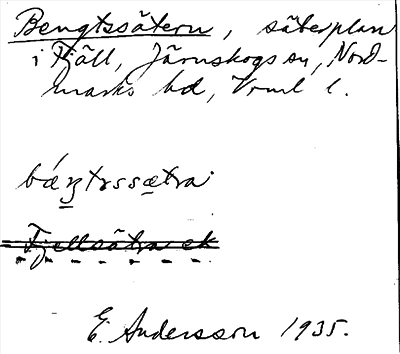 Bengtssätern, säterplan
i Fjäll, Järnskogs sn, Nord-
marks hd, Vrml l.
bá̤ŋtrssæ̤tra
Fjellsätra ek
E. Andersson 1935.